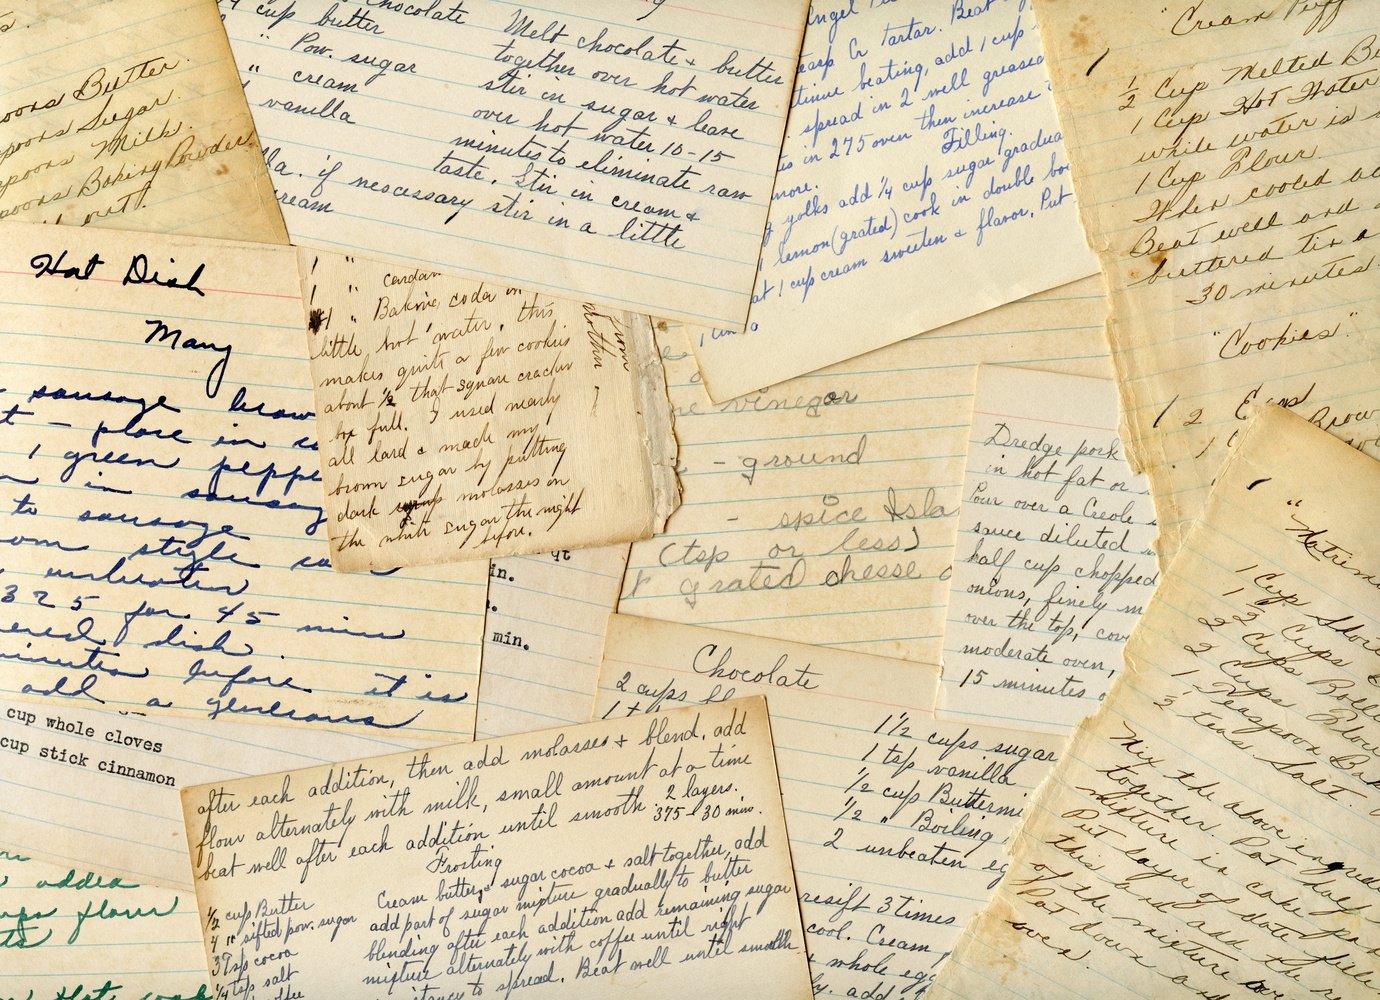 poons Butter.
spoons Sugar.
spoons Milk.
poons Baking Powder.
out.
Chocolate
1/4 cup butter
" Pow. sugar
" cream
vanilla
Melt chocolate + butter
together over hot water
stir in sugar + leave
over hot water 10-15
minutes to eliminate raw
taste. Stir in cream +
lla. if nescessary stir in a little
cream
Angel
teasp Cr tartar. Beat
tinue beating, add 1 cup
spread in 2 well greased
in 275 oven then increase
more. Filling.
yolks add 1/4 cup sugar gradua
1 lemon (grated) cook in double bo
at 1 cup cream sweeten & flavor. Put
"Cream Puff
1/2 Cup Melted Bu
1 Cup Hot Water
while water is
1 Cup Flour
When cooled ad
Beat well and
buttered tin
30 minutes.
"Cookies"
2 Eggs
Brow
Hot Dish
Many
sausage brow
t - place in
1 green peppe
in sausag
to sausage
om style
375 for 45 min
ered dish.
minutes before it is
add a generous
1 " cardam
1 " Baking soda in
little hot water, this
makes quite a few cookies
about 1/2 that square cracker
box full. I used nearly
all lard & made my
brown sugar by putting
dark molasses in
the white sugar the night
before.
from
Mother
vinegar
- ground
- spice Isla
(tsp or less)
grated cheese
Dredge pork
in hot fat or
Pour over a Creole
sauce diluted
half cup chopped
onions, finely m
over the top, cov
moderate oven,
15 minutes
qt
in.
min.
cup whole cloves
cup stick cinnamon
Chocolate
2 cups fl
1 1/2 cups sugar
1 tsp vanilla
1/2 cup Buttermi
1/2 " Boiling
2 unbeaten eg
resift 3 times
cool. Cream
whole egg
add
after each addition, then add molasses + blend, add
flour alternately with milk, small amount at a time
beat well after each addition until smooth. 2 layers.
375 - 30 min.
Frosting
1/2 cup Butter
4 " sifted pow. sugar
3 Tsp cocoa
1/4 tsp salt
coffee
Cream butter, sugar cocoa + salt together, add
add part of sugar mixture gradually to butter
blending after each addition add remaining sugar
mixture alternately with coffee until right
to spread. Beat well until smooth
added
cups flour
"Matrim
1 Cup Shor
1 1/2 Cups
2 Cups Boil
2 Cups Flou
1 Teaspoon Bak
1/2 teas Salt.
Mix the above ingredi
together. Pat half
mixture in cake pan
Put layer of date fill
this and add the
of the mixture
Pat down
oven.